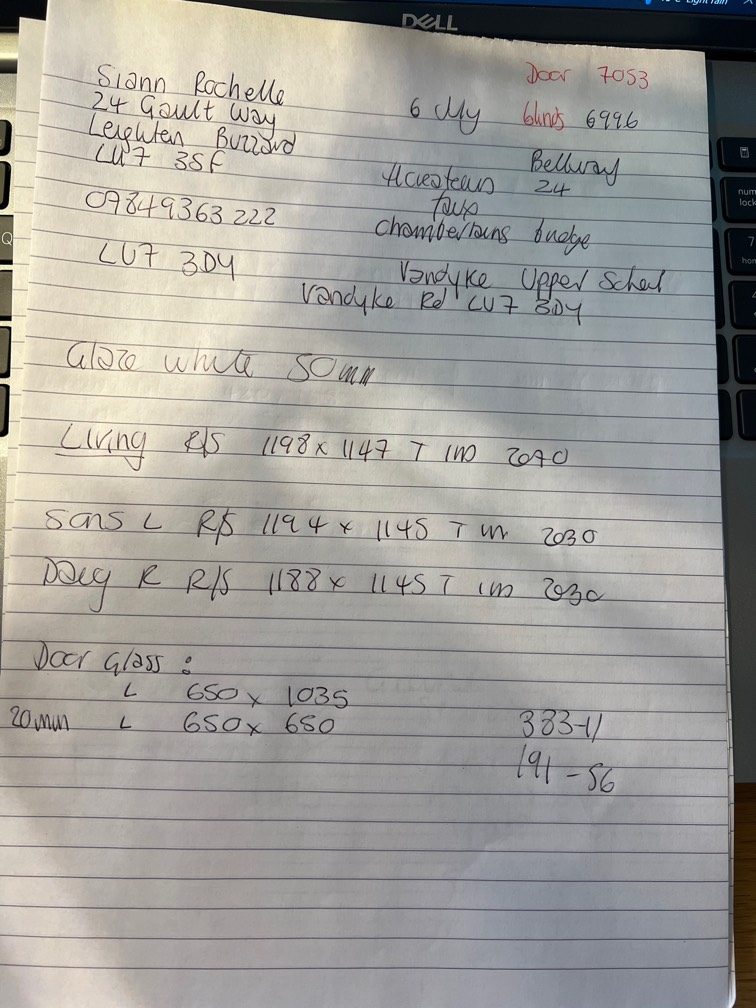 DELL
Door 7053
Siann Rochelle
6 My blinds 6996
24 Gault Way
Leighten Buzzard
LU7 3SF
Bellway
24
faux
chamberlains budge
07849363222
LU7 3DY
Vandyke Upper School
Vandyke Rd LU7 3DY
Gloze white 50mm
Living R/S 1198 x 1147 T 2070
Sons L R/S 1194 x 1145 T 2030
R R/S 1188 x 1145 T 2030
Door Glass :
L 650 x 1035
20mm L 650 x 650
383-11
191-56